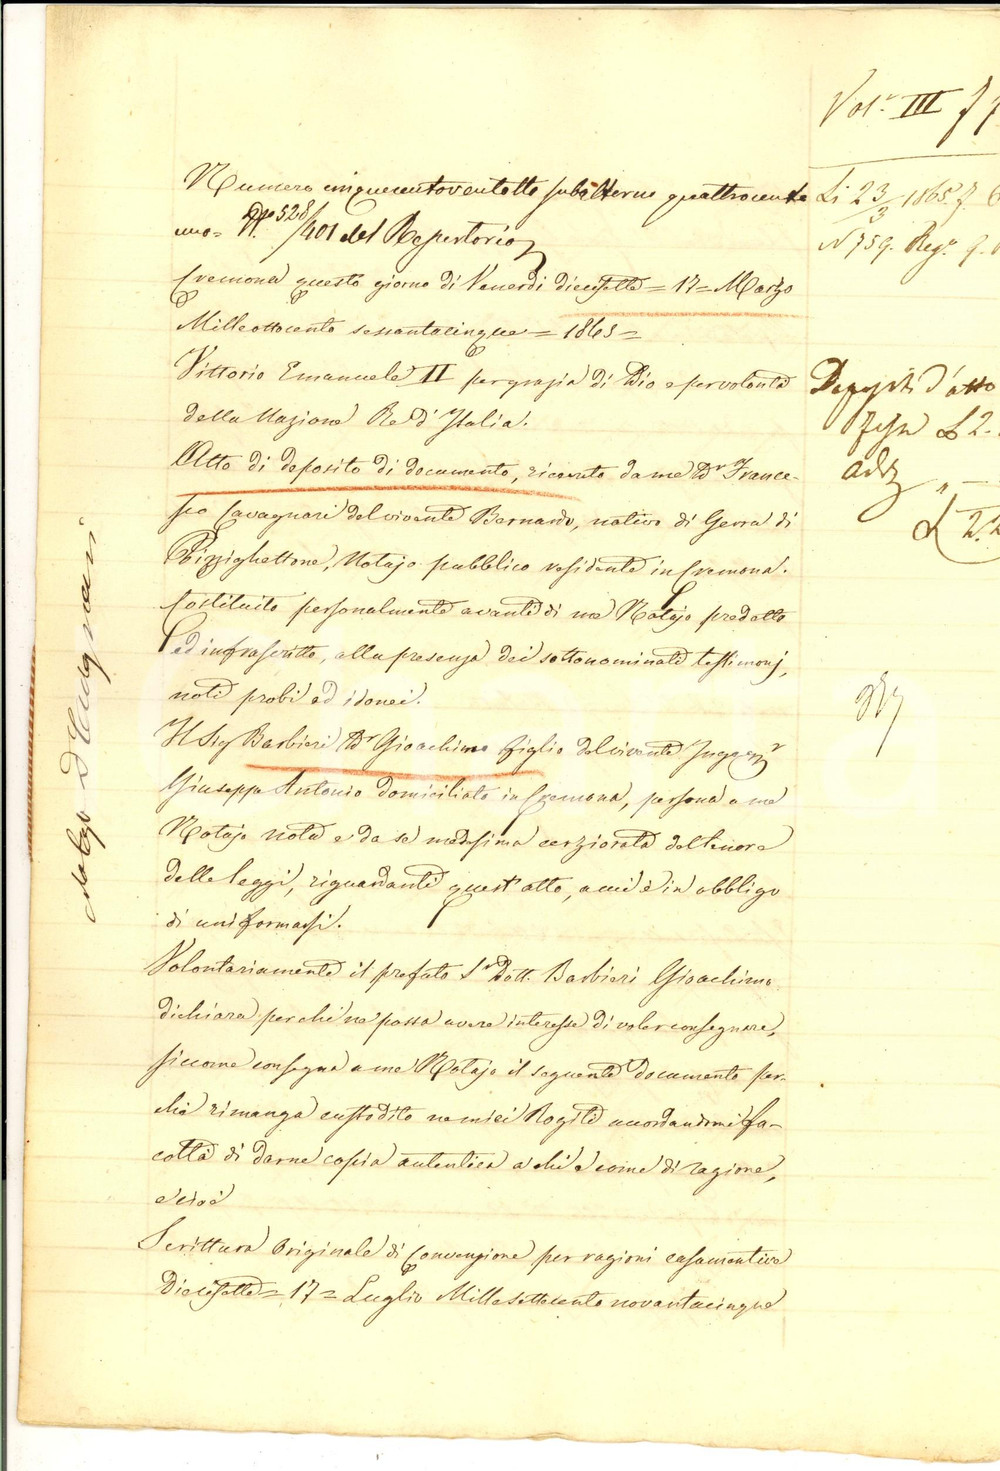 Numero cinquecentoventotto subalterno quattrocento
uno = N.º 528/401 del Repertorio
Cremona questo giorno di Venerdi diecisette = 17 = Marzo
Milleottocento sessantacinque = 1865 =
Vittorio Emanuele II per grazia di Dio e per volontà
della Nazione Re d'Italia.
Atto di deposito di documento, ricevuto da me Dr France-
sco Cavagnari del vivente Bernardo, nativo di Gerra di
Pizzighettone, Notajo pubblico residente in Cremona.
Costituito personalmente avanti di me Notajo predetto
ed infrascritto, alla presenza dei sottonominati testimonj,
noti probi ed idonei.
Il Sig Barbieri Dr Gioachimo figlio del vivente
Giuseppe Antonio domiciliato in Cremona, persona a me
Notajo nota e da se medesima cerziorata del tenore
delle leggi, riguardanti quest'atto, a cui è in obbligo
di uniformarsi.
Volontariamente il prefato Sr Dott. Barbieri Gioachimo
dichiara perchè ne possa avere interesse di voler consegnare,
siccome consegna a me Notajo il seguente documento per-
chè rimanga custodito ne miei Rogiti accordandomi fa-
coltà di darne copia autentica a chi e come di ragione,
e cioè
Scrittura Originale di Convenzione per ragioni
Diecisette = 17 = Luglio Millesettecento novantacinque
Vol. III
Li 23/3 1865.
N 759. Reg.
Depositi d'atto
L 2.
Add
L 2.2
Notajo Dr Cavagnari